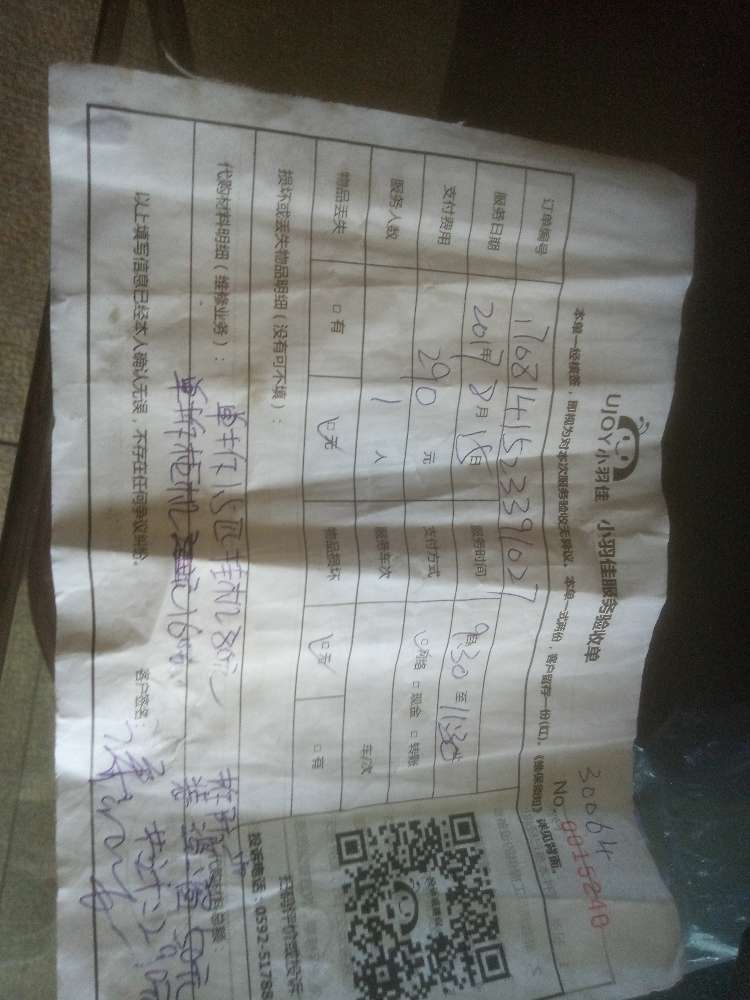 30064
UJOY小羽佳 小羽佳服务验收单
No. 0015240
本单一经核签，即视为对本次服务验收无异议。本单一式两份，客户留存一份(红)。《维保须知》详见背面。
订单编号 1768141523391027
服务日期 2017年8月18日 服务时间 9:30 至 11:30
支付费用 290 元 支付方式 网络 □现金 □转账
服务人数 1 人 服务车次 车/次
物品丢失 □有 无 物品损坏 无 □有
损坏或丢失物品明细（没有可不填）：
代购材料明细（维修业务）：
单拆 挂机80元
单拆柜机
50元
共计: 290元
以上填写信息已经本人确认无误，不存在任何争议纠纷。 客户签名：
扫码评价或投诉
投诉电话：0592-51788